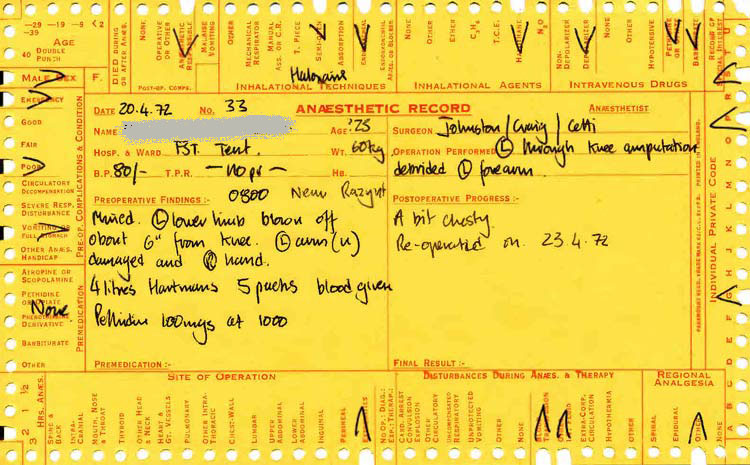 -29 -19 -9 <2
-39
AGE
40 DOUBLE
PUNCH
DIED DURING
OR AFTER ANÆS.
NONE
OPERATIVE
OR OTHER
MALAISE
VOMITING
OTHER
MECHANICAL
RESPIRATOR
MANUAL
ASS. OR C.R.
T. PIECE
ABSORPTION
NONE
OTHER
ETHER
C₃H₆
T.C.E.
N₂O
NON-
DEPOLARIZER
DEPOLARIZER
OTHER
HYPOTENSIVE
Haloraine
MALE SEX F.
POST-OP. COMPS.
INHALATIONAL TECHNIQUES
INHALATIONAL AGENTS
INTRAVENOUS DRUGS
EMERGENCY
GOOD
FAIR
POOR
CIRCULATORY
DECOMPENSATION
SEVERE RESP.
DISTURBANCE
VOMITING OR
FULL STOMACH
OTHER ANÆS.
HANDICAP
PRE-OP. COMPLICATIONS & CONDITION
ATROPINE OR
SCOPOLAMINE
PETHIDINE
OR OPIATE
None
PHENOTHIAZINE
DERIVATIVE
BARBITURATE
OTHER
PREMEDICATION
DATE 20.4.72 NO. 33 ANÆSTHETIC RECORD ANÆSTHETIST
NAME AGE '25
HOSP. & WARD FST Tent. WT. 60kg
B.P. 80/- T.P.R. — no pr — HB.
PREOPERATIVE FINDINGS :- 0800
Mined. Ⓛ lower limb blown off
about 6" from knee. Ⓛ arm (u)
damaged and Ⓡ hand.
4 litres Hartmans 5 packs blood given
Pethidine 100mgs at 1000
PREMEDICATION :-
SURGEON Johnston/Craig/Cetti
OPERATION PERFORMED Ⓛ through knee amputation
debrided Ⓛ forearm.
POSTOPERATIVE PROGRESS :-
A bit chesty
Re-operated on 23.4.72
FINAL RESULT :-
INDIVIDUAL PRIVATE CODE
A B C D E F G H
3 2 1½ 1 ½
HRS. ANÆS.
SITE OF OPERATION
DISTURBANCES DURING ANÆS. & THERAPY
REGIONAL
ANALGESIA
SPINE &
BACK
INTRA-
CRANIAL
MOUTH, NOSE
& THROAT
THYROID
OTHER HEAD
& NECK
HEART &
GT. VESSELS
PULMONARY
OTHER INTRA-
THORACIC
CHEST-WALL
LUMBAR
UPPER
ABDOMINAL
LOWER
ABDOMINAL
INGUINAL
PERINEAL
CARD. ARREST
CONVULSION
EXPLOSION
OTHER
CIRCULATORY
UNCOMPENSATED
RESPIRATORY
UNPROTECTED
VOMITING
OTHER
NONE
EXTRA-CORP.
CIRCULATION
HYPOTHERMIA
OTHER
SPINAL
EPIDURAL
OTHER
NONE